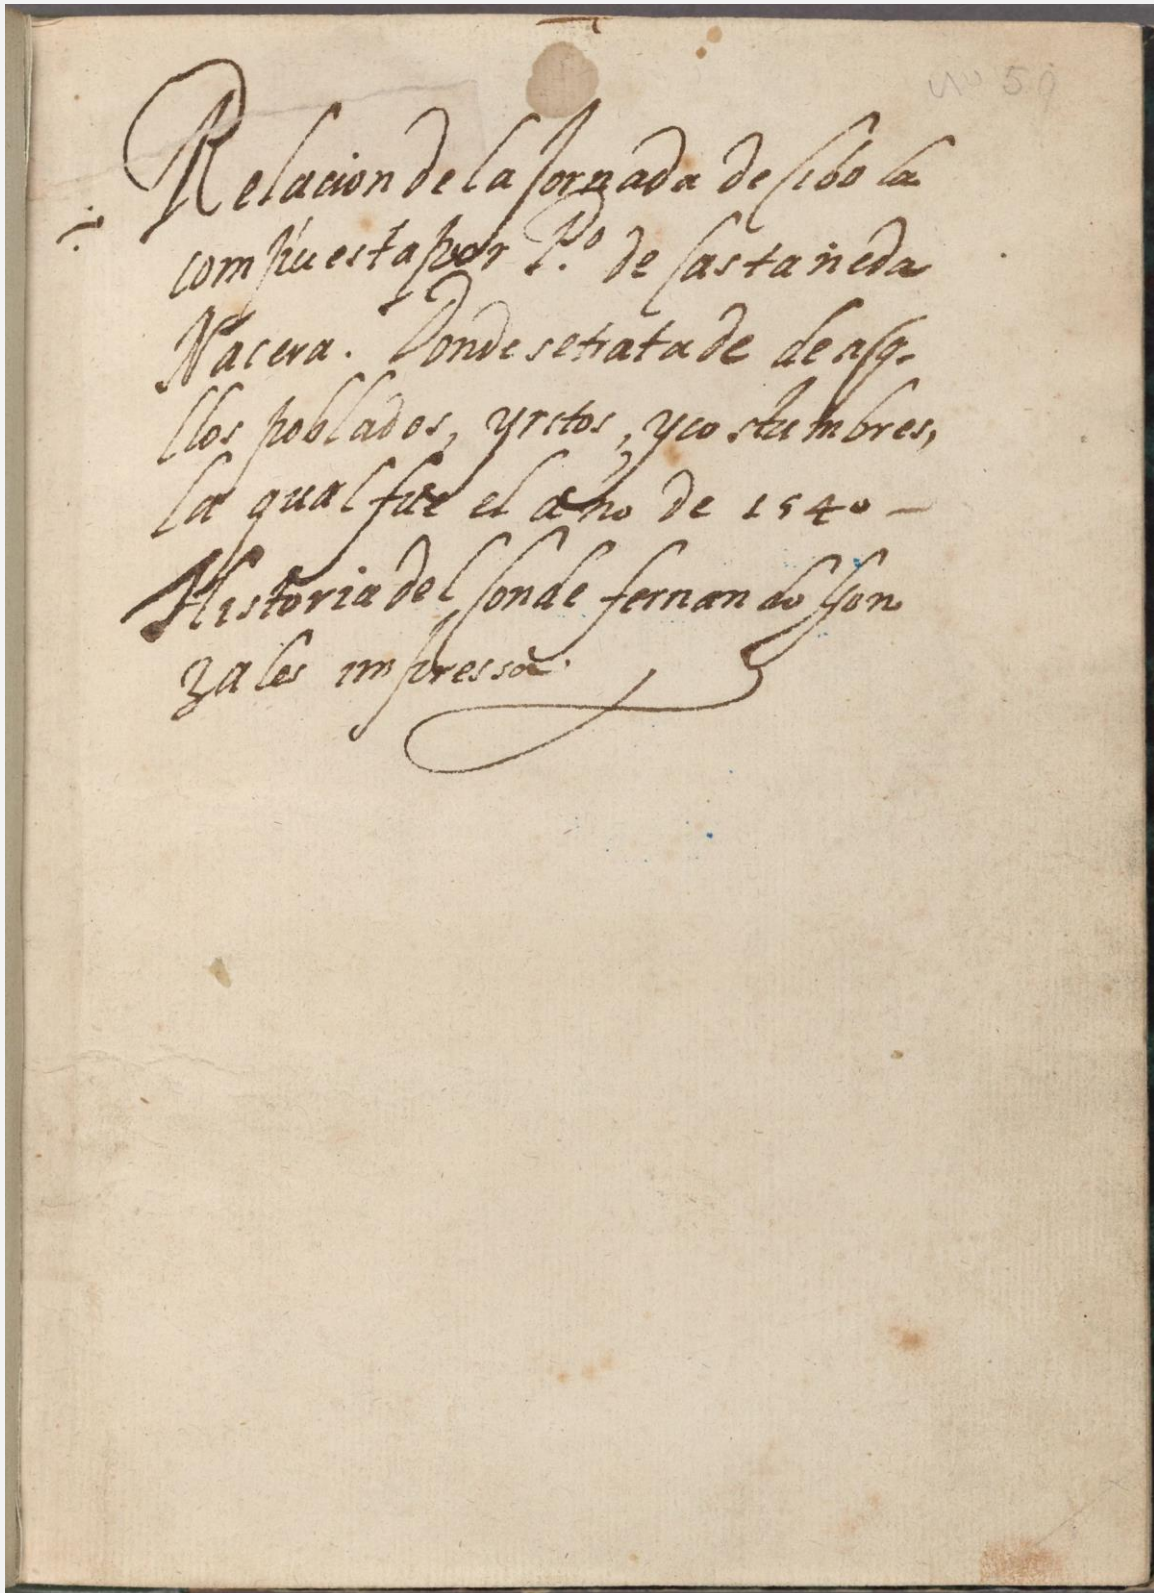 Nº 59
Relacion de la Jornada de Cibola
compuesta por P.º de Castañeda
Nacera. Donde se trata de de aq̃-
llos poblados, y ritos, y costumbres,
la qual fue el año de 1540 –
Historia del Conde fernando Gon
zales impressa.